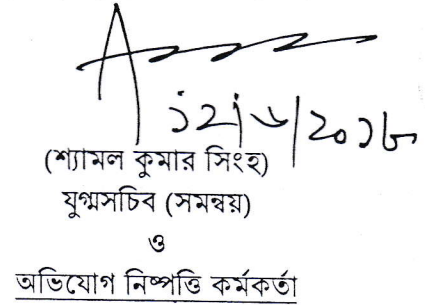 (শ্যামল কুমার সিংহ)
যুগ্মসচিব (সমন্বয়)
ও
অভিযোগ নিষ্পত্তি কর্মকর্তা